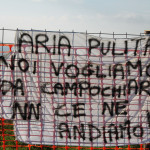 ARIA PULITA
NOI VOGLIAMO
DA CAMPOCHIAR
NN CE NE
ANDIAMO